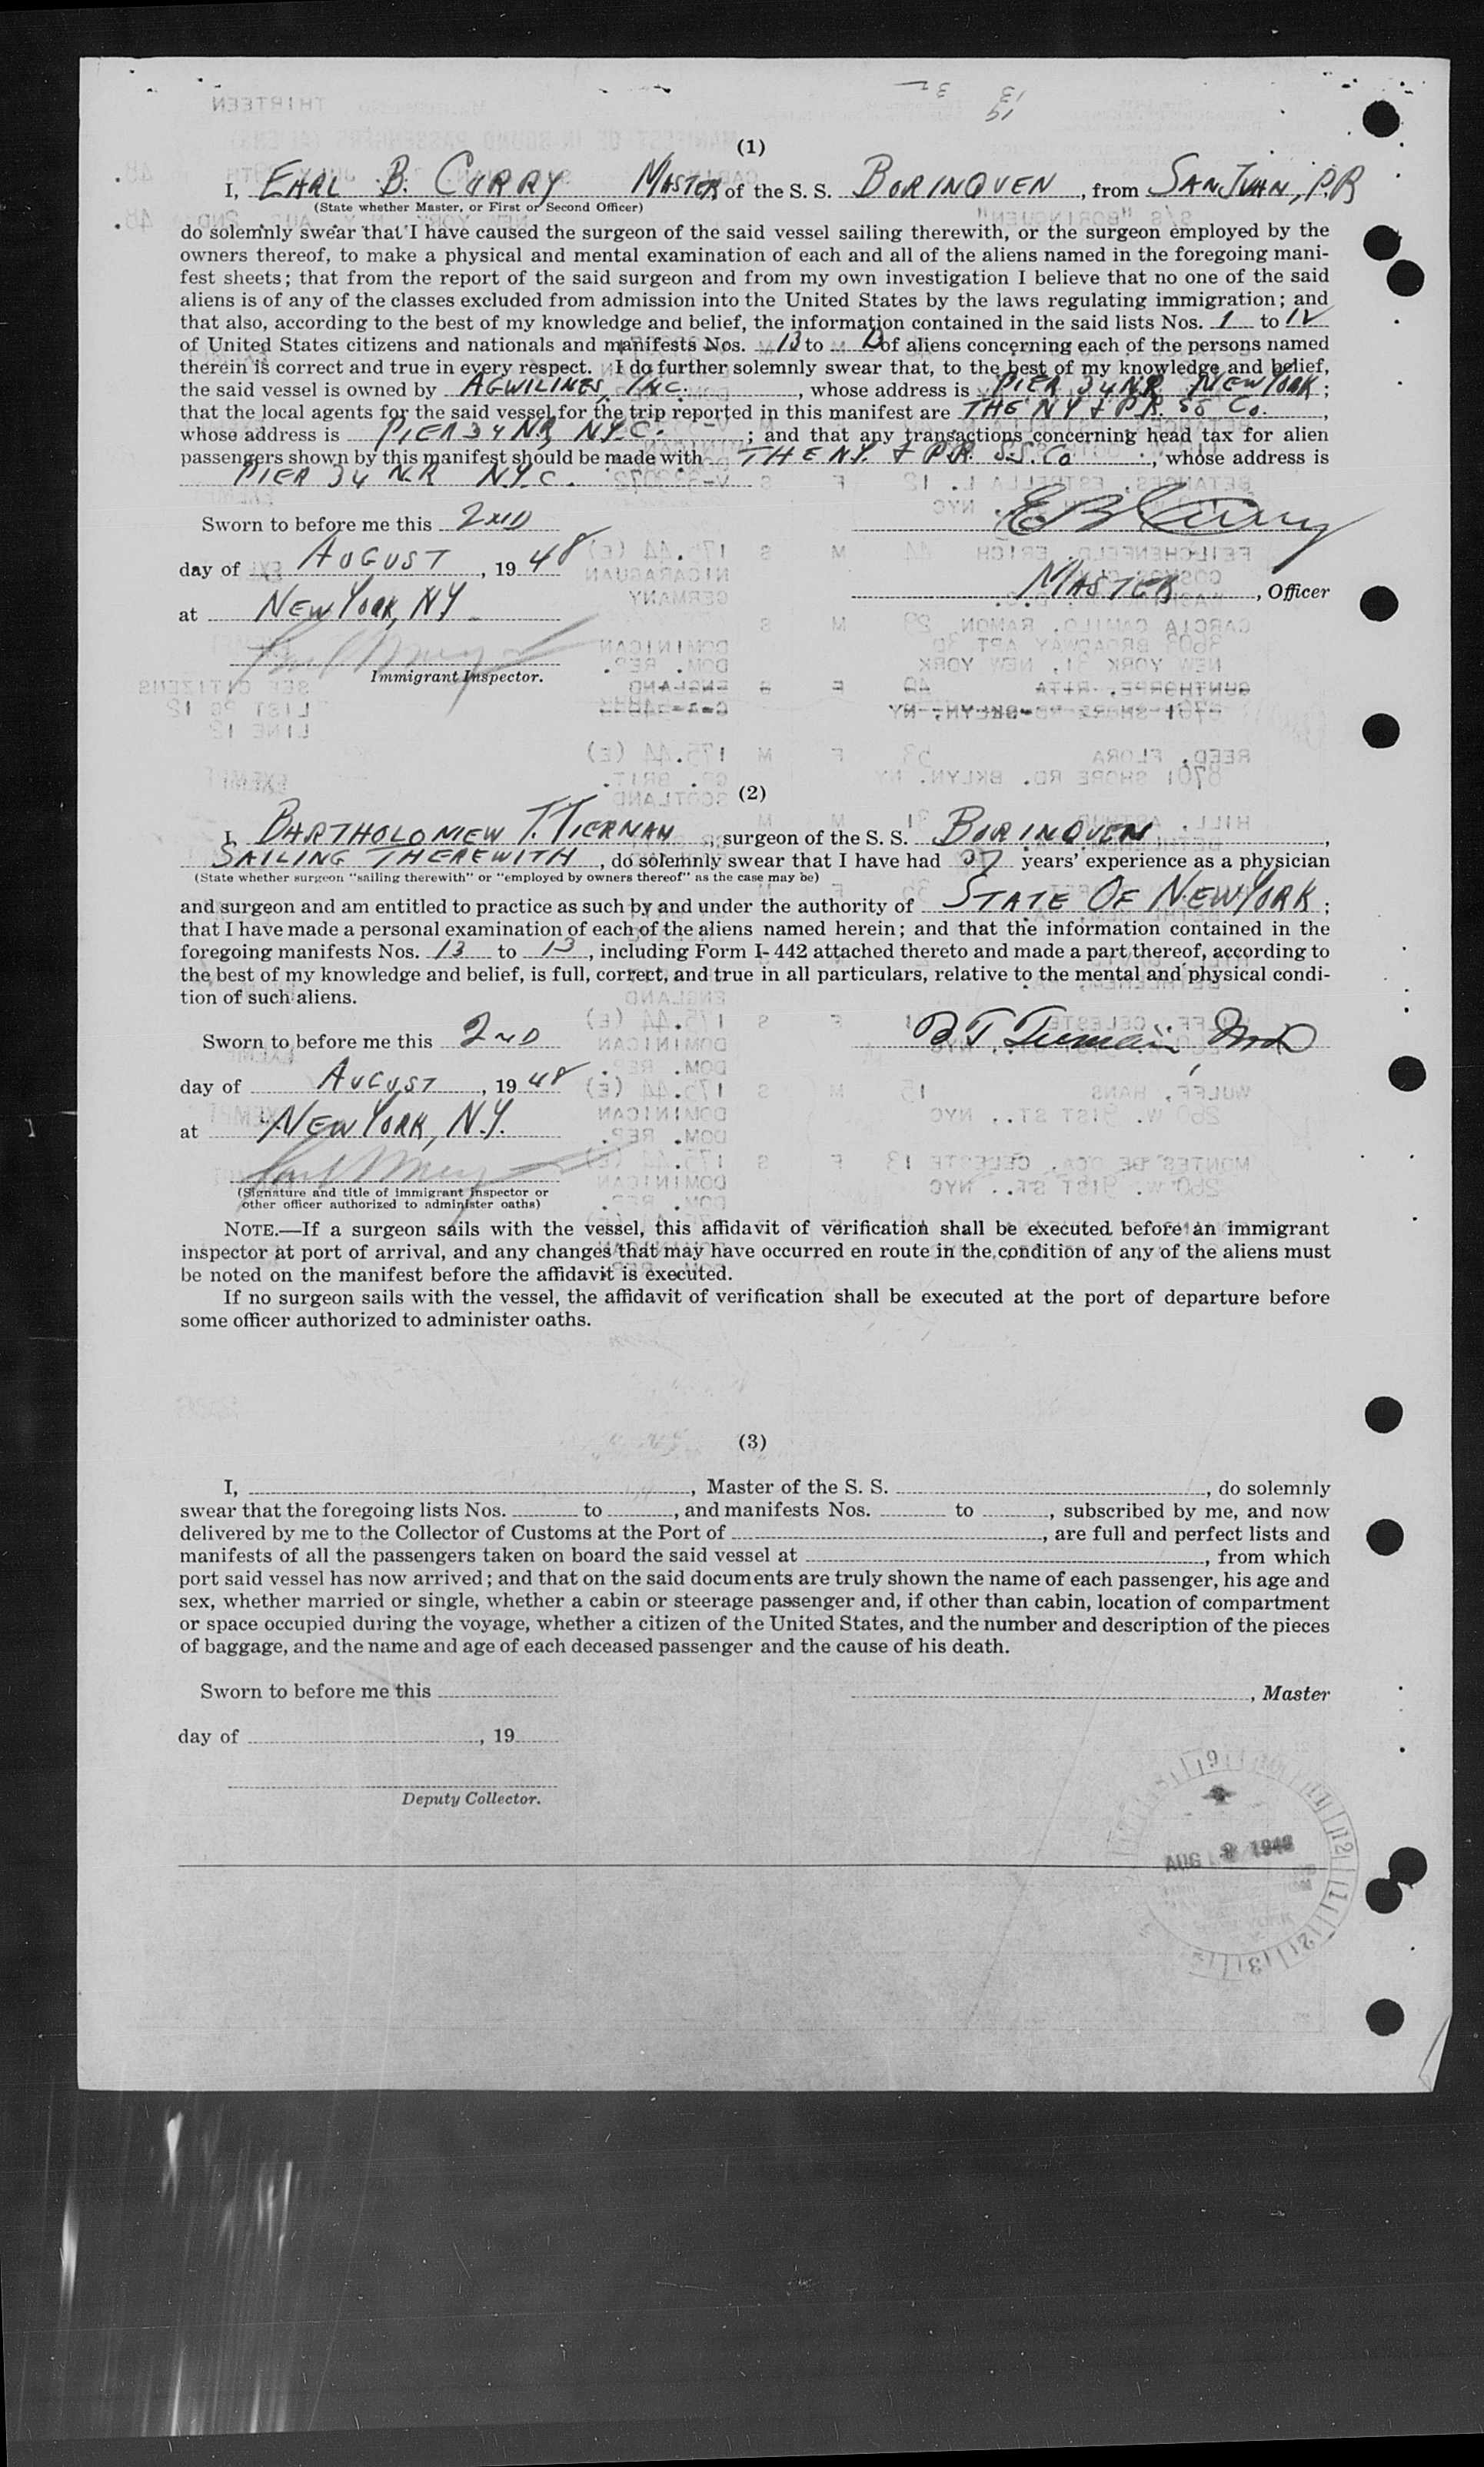 (1)
I, EARL B. CURRY MASTER of the S. S. BORINQUEN, from SAN JUAN, P.R
(State whether Master, or First or Second Officer)
do solemnly swear that I have caused the surgeon of the said vessel sailing therewith, or the surgeon employed by the
owners thereof, to make a physical and mental examination of each and all of the aliens named in the foregoing mani-
fest sheets; that from the report of the said surgeon and from my own investigation I believe that no one of the said
aliens is of any of the classes excluded from admission into the United States by the laws regulating immigration; and
that also, according to the best of my knowledge and belief, the information contained in the said lists Nos. 1 to 12
of United States citizens and nationals and manifests Nos. 13 to 13 of aliens concerning each of the persons named
therein is correct and true in every respect. I do further solemnly swear that, to the best of my knowledge and belief,
the said vessel is owned by AGWILINES, INC., whose address is PIER 34 NR NEW YORK;
that the local agents for the said vessel for the trip reported in this manifest are THE NY & P.R. SS Co.,
whose address is PIER 34 NR N.Y.C.; and that any transactions concerning head tax for alien
passengers shown by this manifest should be made with THE N.Y. & P.R. S.S. Co, whose address is
PIER 34 N.R N.Y.C.
Sworn to before me this 2ND
E B Curry
day of AUGUST, 1948
MASTER, Officer
at NEW YORK, NY
Immigrant Inspector.
(2)
I, BARTHOLOMEW T. TIERNAN, surgeon of the S. S. BORINQUEN,
SAILING THEREWITH, do solemnly swear that I have had 37 years' experience as a physician
(State whether surgeon "sailing therewith" or "employed by owners thereof" as the case may be)
and surgeon and am entitled to practice as such by and under the authority of STATE OF NEW YORK;
that I have made a personal examination of each of the aliens named herein; and that the information contained in the
foregoing manifests Nos. 13 to 13, including Form I-442 attached thereto and made a part thereof, according to
the best of my knowledge and belief, is full, correct, and true in all particulars, relative to the mental and physical condi-
tion of such aliens.
Sworn to before me this 2ND
B T Tiernan MD
day of AUGUST, 1948
at NEW YORK, N.Y.
(Signature and title of immigrant inspector or
other officer authorized to administer oaths)
NOTE.—If a surgeon sails with the vessel, this affidavit of verification shall be executed before an immigrant
inspector at port of arrival, and any changes that may have occurred en route in the condition of any of the aliens must
be noted on the manifest before the affidavit is executed.
If no surgeon sails with the vessel, the affidavit of verification shall be executed at the port of departure before
some officer authorized to administer oaths.
(3)
I, , Master of the S. S. , do solemnly
swear that the foregoing lists Nos. to , and manifests Nos. to , subscribed by me, and now
delivered by me to the Collector of Customs at the Port of , are full and perfect lists and
manifests of all the passengers taken on board the said vessel at , from which
port said vessel has now arrived; and that on the said documents are truly shown the name of each passenger, his age and
sex, whether married or single, whether a cabin or steerage passenger and, if other than cabin, location of compartment
or space occupied during the voyage, whether a citizen of the United States, and the number and description of the pieces
of baggage, and the name and age of each deceased passenger and the cause of his death.
Sworn to before me this
, Master
day of , 19
Deputy Collector.
AUG 2 1948